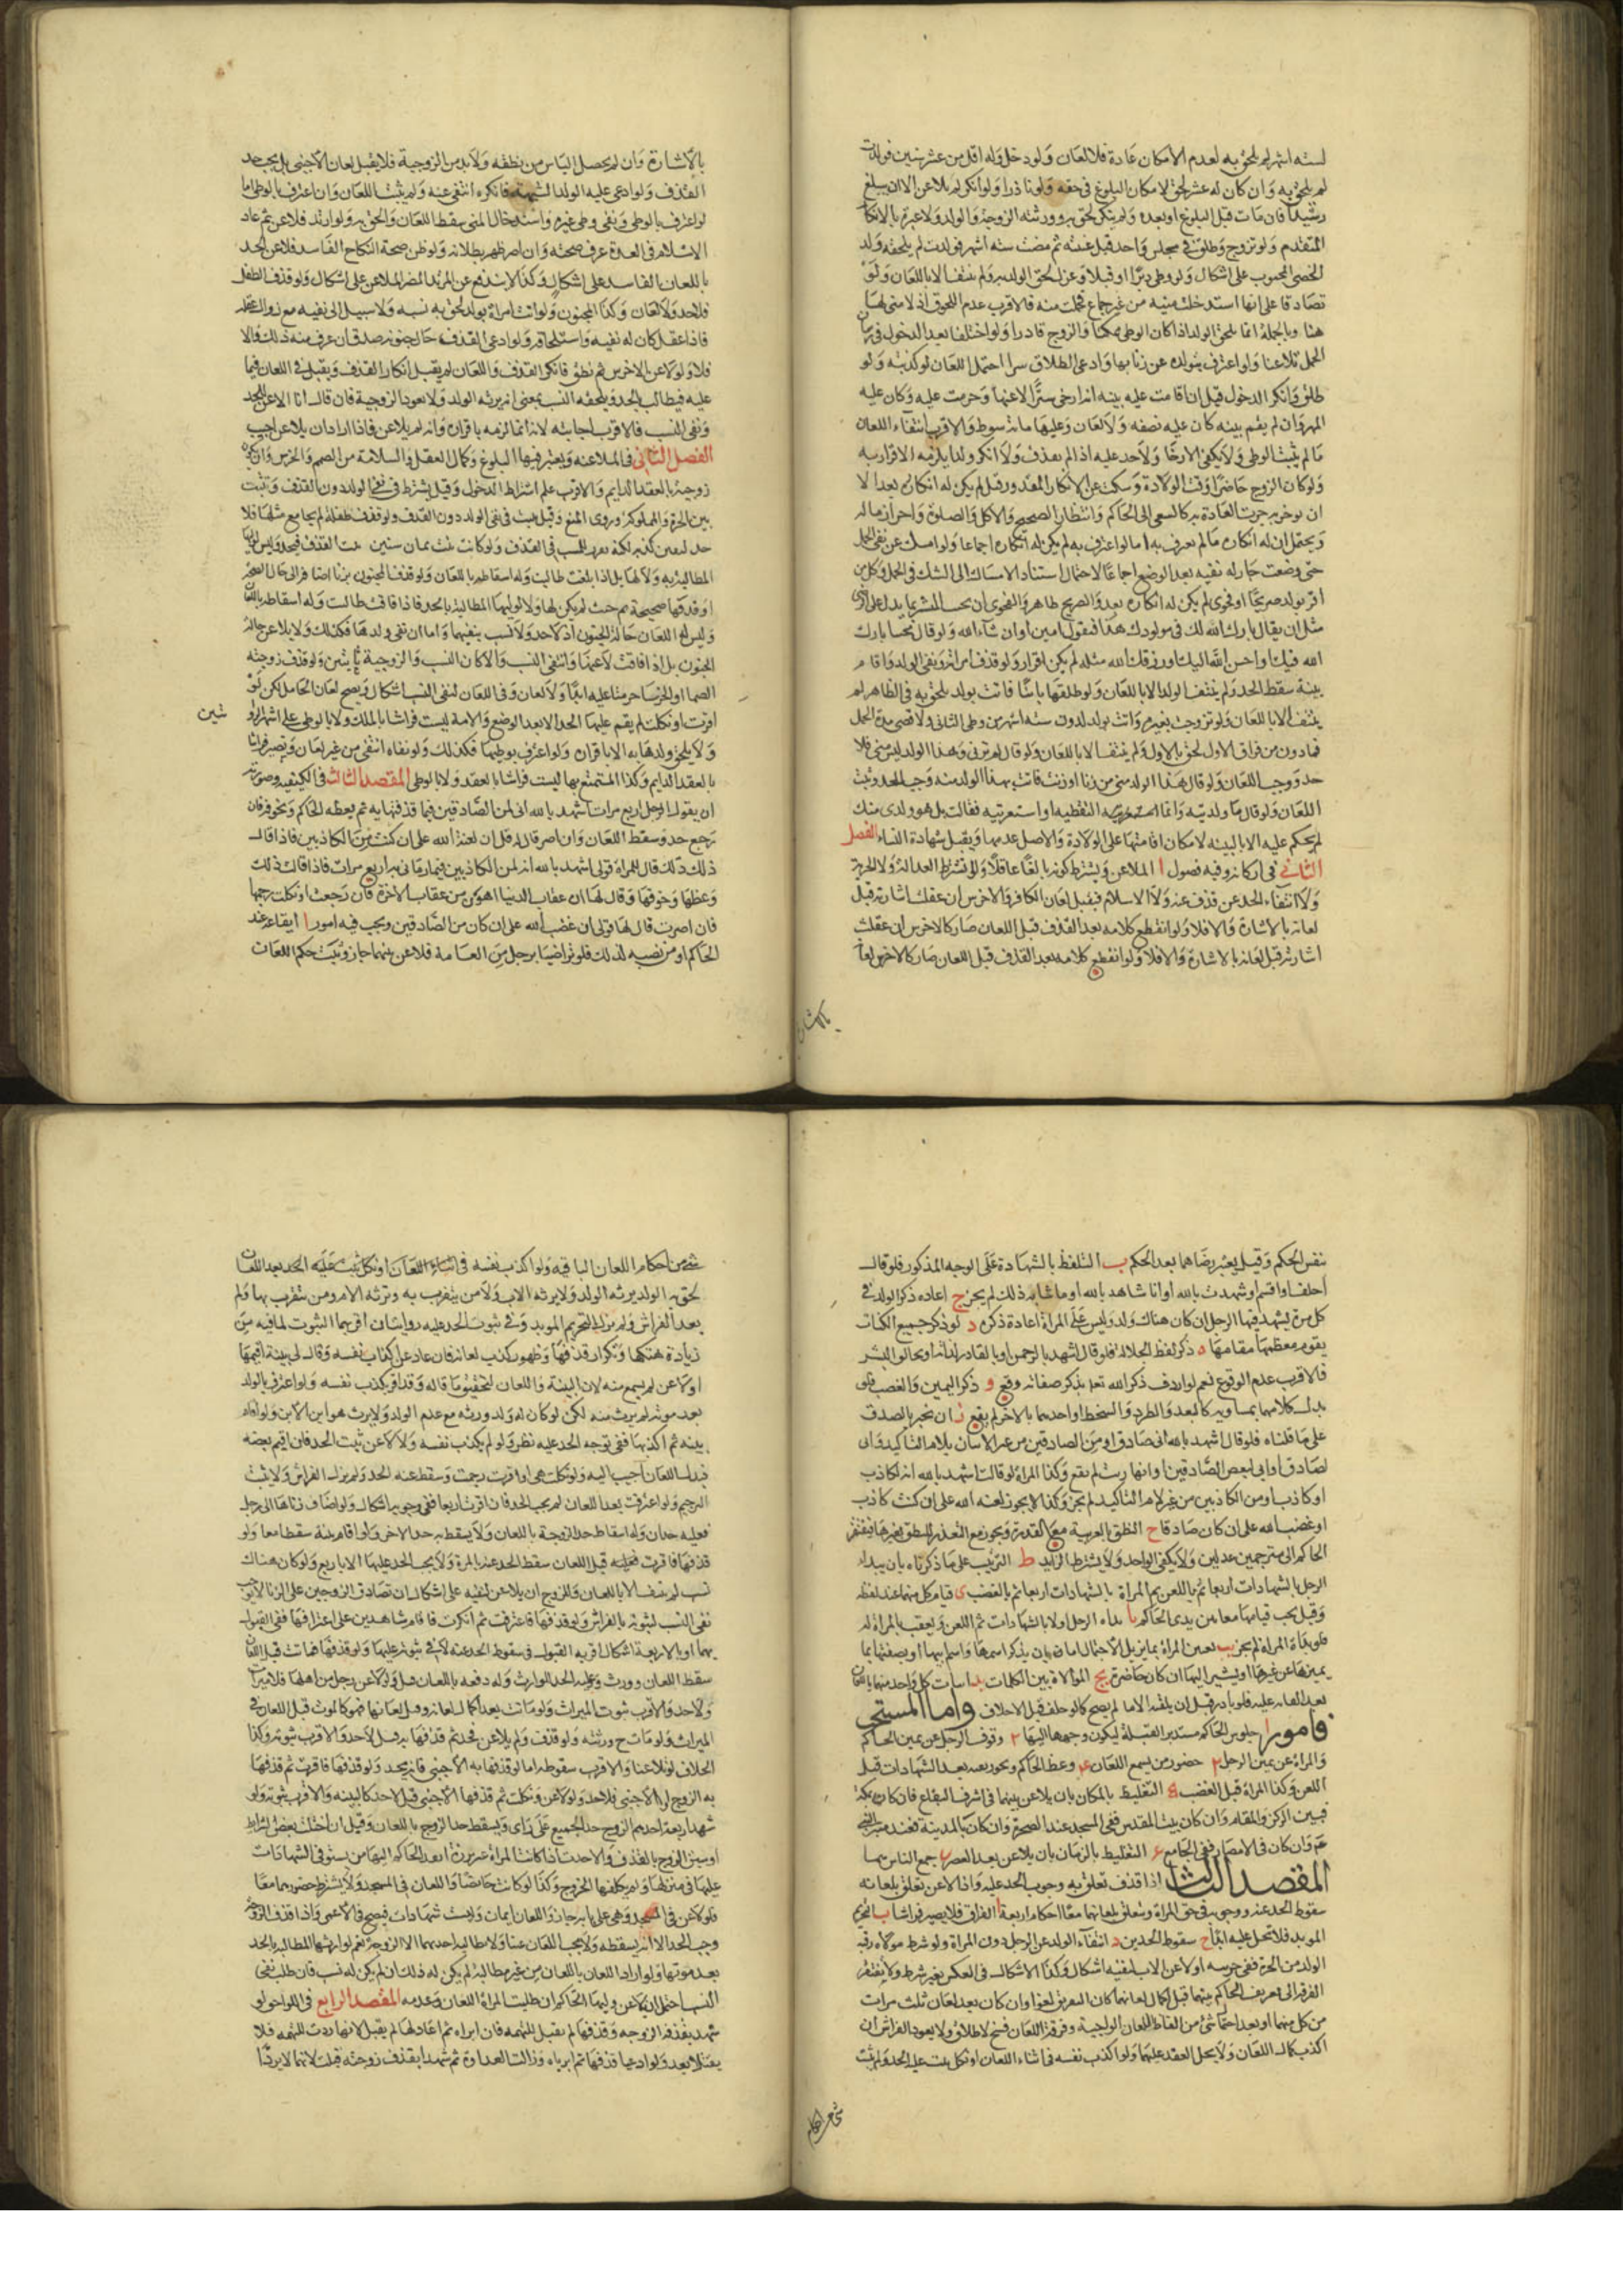 لستة اشهر لم يلحق به لعدم الامكان عادة فلا لعان ولو دخل وله اقل من عشر سنين فولدت
لم يلحق به وان كان له عشر لحق لامكان البلوغ في حقه ولو نادرا ولو انكر لم يلاعن الا ان يبلغ
رشيدا فان مات قبل البلوغ او بعده ولم ينكر لحق به وورثته الزوجة والولد ولا عبرة بالانكار
المتقدم ولو تزوج وطلق في مجلس واحد قبل غيبته ثم مضت ستة اشهر فولدت لم يلحقه ولد
الخصي المجبوب على اشكال ولو وطى دبرا او قبلا وعزل لحق الولد به ولم ينتف الا باللعان ولو
تصادقا على انها استدخلت منيه من غير جماع فحملت منه فالاقرب عدم اللحوق اذ لا مني لها
هنا وبالجملة انما يلحق الولد اذا كان الوطى ممكنا والزوج قادرا ولو اختلفا بعد الدخول في زمان
الحمل تلاعنا ولو اعترف بتولده عن زنا بها وادعى الطلاق سرا احتمل اللعان لو كذبته ولو
طلق وانكر الدخول قيل ان اقامت عليه بينة انه ارخى سترا لاعنها وحرمت عليه وكان عليه
المهر وان لم يقم بينه كان عليه نصفه ولا لعان وعليها مائة سوط والاقرب انتفاء اللعان
ما لم يثبت الوطى ولا يكفي الارخا ولا حد عليه اذ لم يقذف ولا انكر ولدا يلزمه الاقرار به
ولو كان الزوج حاضرا وقت الولادة وسكت عن الانكار المقدور قيل لم يكن له انكاره بعد الا
ان يوخر بما جرت العادة به كالسعي الى الحاكم وانتظار الصحيح والاكل والصلوة واحراز ماله
ويحتمل ان له انكاره ما لم يعرف به اما لو اعترف به لم يكن له انكاره اجماعا ولو امسك عن نفي الحمل
حتى وضعت جاز له نفيه بعد الوضع اجماعا لاحتمال استناد الامساك الى الشك في الحمل وكل من
اقر بولد صريحا او فحوى لم يكن له انكاره بعد والصريح ظاهر والفحوى ان يجيب المبشر بما يدل على الرضا
مثل ان يقال بارك الله لك في مولودك هذا فيقول امين او ان شاء الله ولو قال مجيبا بارك
الله فيك او احسن الله اليك او رزقك الله مثله لم يكن اقرار ولو قذف امراته ونفى الولد واقام
بينة سقط الحد ولم ينتف الولد الا باللعان ولو طلقها باينا فاتت بولد يلحق به في الظاهر لم
ينتف الا باللعان ولو تزوجت بغيره واتت بولد لدون ستة اشهر من وطى الثاني ولاقصى مدة الحمل
فما دون من فراق الاول لحق بالاول ولم ينتف الا باللعان ولو قال لم تزني وهذا الولد ليس مني فلا
حد ووجب اللعان ولو قال هذا الولد من زنا او زنت فاتت بهذا الولد منه وجب الحد وثبت
اللعان ولو قال ما ولدتيه وانما التقطتيه او استعرتيه فقالت بل هو ولدي منك
لم يحكم عليه الا بالبينة لامكان اقامتها على الولادة والاصل عدمها ويقبل شهادة النساء الفصل
الثاني في اركانه وفيه فصول ا الملاعن ويشترط كونه بالغا عاقلا ولا يشترط العدالة ولا الحرية
ولا انتفاء الحد عن قذف عنه ولا الاسلام فيقبل لعان الكافر والاخرس ان عقلت اشارته قبل
لعانه بالاشارة والا فلا ولو انقطع كلامه بعد القذف قبل اللعان صار كالاخرس ان عقلت
اشارته قبل لعانه بالاشارة والا فلا ولو انقطع كلامه بعد القذف قبل اللعان صار كالاخرس لعانه
بالاشارة
بالاشارة وان لم يحصل الياس من نطقه ولا بد من الزوجية فلا يقبل لعان الاجنبي بل يجب حد
القذف ولو ادعي عليه الولد للشبهة فانكره انتفى عنه ولم يثبت اللعان وان اعترف بالوطى اما
لو اعترف بالوطى ونفى وطى غيره واستدخال المني سقط اللعان والحق به ولو ارتد فلاعن ثم عاد
الاسلام في العدة عرف صحته وان اصر ظهر بطلانه ولو ظن صحة النكاح الفاسد فلاعن لحد
باللعان الفاسد على اشكال وكذا لا يندفع عن المرتد المصر الملاعن على اشكال ولو قذف الطفل
فلا حد ولا لعان وكذا المجنون ولو اتت امراة بولد لحق به نسبه ولا سبيل الى نفيه مع زوال عقله
فاذا عقل كان له نفيه واستلحاقه ولو ادعى القذف حال جنونه صدق ان عرف منه ذلك والا
فلا ولو لاعن الاخرس ثم نطق فانكر القذف واللعان لم يقبل انكار القذف ويقبل في اللعان فيما
عليه فيطالب بالحد ويلحقه النسب بمعنى انه يرثه الولد ولا تعود الزوجية فان قال انا الاعن للحد
ونفي النسب فالاقرب اجابته لانه انما لزمه باقراره وانه لم يلاعن فاذا اراد ان يلاعن اجيب
الفصل الثاني في الملاعنة ويعتبر فيها البلوغ وكمال العقل والسلامة من الصمم والخرس وان تكون
زوجة بالعقد الدايم والاقرب عدم اشتراط الدخول وقيل يشترط في نفي الولد دون القذف وتثبت
بين الحرة والمملوكة وروى المنع وقيل يثبت في نفي الولد دون القذف ولو قذف طفلة لم يجامع مثلها فلا
حد لتعين كذبه لكنه يعزر للسب في القذف ولو كانت بنت ثمان سنين ثبت القذف فيحد وليس لوليها
المطالبة به ولا لها بل اذا بلغت طالبت وله اسقاطه باللعان ولو قذف المجنون بزنا اضافه الى حال الصحة
او قذفها صحيحة ثم جنت لم يكن لها ولا لوليها المطالبة بالحد فاذا افاقت طالبت وله اسقاطه باللعان
وليس له اللعان حالة الجنون اذ لا حد ولا نسب ينفيهما واما ان نفى ولدها فكذلك ولا يلاعن حالة
الجنون بل اذا افاقت لاعنها وانتفى النسب والا كان النسب والزوجية ثابتين ولو قذف زوجته
الصما او الخرسا حرمتا عليه ابدا ولا لعان وفي اللعان لنفي النسب اشكال ويصح لعان الحامل لكن لو
اقرت او نكلت لم يقم عليها الحد الا بعد الوضع والامة ليست فراشا بالملك ولا بالوطى على اشهر الروايتين
ولا يلحق ولدها به الا باقراره ولو اعترف بوطيها فكذلك ولو نفاه انتفى من غير لعان وتصير فراشا
بالعقد الدايم وكذا المتمتع بها ليست فراشا بالعقد ولا بالوطى المقصد الثالث في الكيفية وصورته
ان يقول الرجل اربع مرات اشهد بالله اني لمن الصادقين فيما قذفتها به ثم يعظه الحاكم ويخوفه فان
رجع حد وسقط اللعان وان اصر قال له قل ان لعنة الله علي ان كنت من الكاذبين فاذا قال
ذلك قال للمراة قولي اشهد بالله انه لمن الكاذبين فيما رماني به اربع مرات فاذا قالت ذلك
وعظها وخوفها وقال لها ان عقاب الدنيا اهون من عقاب الاخرة فان رجعت او نكلت رجمها
فان اصرت قال لها قولي ان غضب الله علي ان كان من الصادقين ويجب فيه امور ا ايقاعه عند
الحاكم او من نصبه لذلك فلو تراضيا برجل من العامة فلاعن بينهما جاز ويثبت حكم اللعان
نفس الحكم وقيل يعتبر رضاهما بعد الحكم ب التلفظ بالشهادة على الوجه المذكور فلو قال
احلف او اقسم او شهدت بالله او انا شاهد بالله او ما شابه ذلك لم يجز ج اعادة ذكر الولد في
كل مرة يشهد فيها الرجل ان كان هناك ولد وليس على المراة اعادة ذكره د لو ذكر جميع الكلمات
يقوم معظمها مقامها ه ذكر لفظ الجلالة فلو قال اشهد بالرحمن او بالقادر لذاته او بخالق البشر
فالاقرب عدم الوقوع نعم لو اردف ذكر الله تعالى بذكر صفاته وقع و ذكر اليمين والغضب فلو
بدل كلا منهما بمساويه كالبعد والطرد والسخط او احدهما بالاخر لم يقع ز ان يخبر بالصدق
على ما قلناه فلو قال اشهد بالله اني صادق او من الصادقين من غير الاتيان بلام التاكيد واني
لصادق او اني لبعض الصادقين او انها زنت لم يقع وكذا المراة لو قالت اشهد بالله انه لكاذب
او كاذب او من الكاذبين من غير لام التاكيد لم يجز وكذا لا يجوز لعنة الله علي ان كنت كاذب
او غضب الله علي ان كان صادقا ح النطق بالعربية مع القدرة ويجوز مع التعذر النطق بغيرها فيفتقر
الحاكم الى مترجمين عدلين ولا يكفي الواحد ولا يشترط الزايد ط الترتيب على ما ذكرناه بان يبدا
الرجل بالشهادات اربعا ثم باللعن ثم المراة بالشهادات اربعا ثم بالغضب ى قيام كل منهما عند لفظه
وقيل يجب قيامهما معا بين يدي الحاكم يا بداة الرجل اولا بالشهادات ثم اللعن ويعقب بالمراة له
فلو بداة المراة لم يجز يب تعيين المراة بما يزيل الاحتمال اما بان يذكر اسمها واسم ابيها او يصفها بما
يميزها عن غيرها او يشير اليها ان كان حاضرة يج الموالاة بين الكلمات يد اتيان كل واحد منهما باللعان
بعد القائه عليه فلو بادر قبل ان يلقنه الامام لم يصح كما لو حلف قبل الاحلاف واما المستحب
فامور ا جلوس الحاكم مستدبر القبلة ليكون وجههما اليها ٢ وقوف الرجل عن يمين الحاكم
والمراة عن يمين الرجل ٣ حضور من يسمع اللعان ٤ وعظ الحاكم وتخويفه بعد الشهادات قبل
اللعن وكذا المراة قبل الغضب ٥ التغليظ بالمكان بان يلاعن بينهما في اشرف البقاع فان كان بمكة
فبين الركن والمقام وان كان بيت المقدس ففي المسجد عند الصخرة وان كان بالمدينة فعند منبر النبي
عم وان كان في الامصار ففي الجامع ٦ التغليظ بالزمان بان يلاعن بعد العصر ٧ جمع الناس لهما
المقصد الثالث اذا قذف تعلق به وجوب الحد عليه واذا لاعن تعلق بلعانه
سقوط الحد عنه ووجوبه في حق المراة ويتعلق بلعانهما معا احكام اربعة ا الفراق فلا يصير فراشا ب التحريم
الموبد فلا تحل عليه ابدا ج سقوط الحدين د انتفاء الولد عن الرجل دون المراة ولو شرط مولاه رقية
الولد من الحرة ففي حريته او لاعن الاب لنفيه اشكال وكذا الاشكال في العكس بغير شرط ولا يفتقر
الفرقة الى تعريف الحاكم بينهما قبل اكمال لعانهما كان التعريف لغوا وان كان بعد لعان ثلث مرات
من كل منهما او بعد اختلال شئ من الفاظ اللعان الواجبة وفرقة اللعان فسخ لا طلاق ولا يعود الفراش ان
اكذب بعد كمال اللعان ولا يحل العقد عليها ولو اكذب نفسه في اثناء اللعان او نكل ثبت عليه الحد ولم يثبت
شئ من احكام
شئ من احكام اللعان الباقية ولو اكذب نفسه في اثناء اللعان او نكل ثبت عليه الحد بعد اللعان
لحق به الولد يرثه الولد ولا يرثه الاب ولا من يتقرب به وترثه الام ومن يتقرب بها ولم
يعد الفراش ولم يزل التحريم الموبد وفي ثبوت الحد عليه روايتان اقربهما الثبوت لما فيه من
زيادة هتكها وتكرار قذفها وظهور كذب لعانه فان عاد عن اكذاب نفسه وقال لي بينة اقيمها
او لاعن لم يسمع منه لان البينة واللعان لتحقيق ما قاله وقد اقر بكذب نفسه ولو اعترف بالولد
بعد موته لم يرث منه لكن لو كان له ولد ورثه مع عدم الولد ولا يرث هو ابن الابن ولو اقام
بينه ثم اكذبها ففي توجه الحد عليه نظر ولو لم يكذب نفسه ولا لاعن ثبت الحد فان اقيم بعضه
فبذل اللعان اجيب اليه ولو نكلت هي او اقرت رجمت وسقط عنه الحد ولم يزل الفراش ولا يثبت
التحريم ولو اعترفت بعد اللعان لم يجب الحد فان اقرت اربعا ففي وجوبه اشكال ولو اضاف زناها الى رجل
فعليه حدان وله اسقاط حد الزوجة باللعان ولا يسقط به حد الاخر ولو اقام بينة سقطا معا ولو
قذفها فاقرت قبل اللعان سقط الحد عنه بالمرة ولا يجب الحد عليها الا باربع ولو كان هناك
نسب لم ينتف الا باللعان وللزوج ان يلاعن لنفيه على اشكال ان تصادق الزوجين على الزنا لا يوجب
نفي النسب لثبوته بالفراش ولو قذفها فاعترفت ثم انكرت فاقام شاهدين على اعترافها ففي القبول
بهما او بالاربعة اشكال اقربه القبول في سقوط الحد عنه لا في ثبوته عليها ولو قذفها فماتت قبل اللعان
سقط اللعان وورث وعليه الحد للوارث وله دفعه باللعان قيل ولو لاعن رجل من اهلها فلا ميراث
ولا حد والاقرب ثبوت الميراث ولو ماتت بعد اكمال لعانه وقبل لعانها فهو كالموت قبل اللعان في
الميراث ولو مات ح ورثته ولو قذف ولم يلاعن فحد ثم قذفها به قيل لا حد والاقرب ثبوته وكذا
الخلاف لو تلاعنا والاقرب سقوطه اما لو قذفها به الاجنبي فانه يحد ولو قذفها فاقرت ثم قذفها
به الزوج او الاجنبي فلا حد ولو لاعن ونكلت ثم قذفها الاجنبي قيل لا حد كالبينه والاقرب ثبوته ولو
شهد اربعة احدهم الزوج حد الجميع على راى ويسقط حد الزوج باللعان وقيل ان اختلت بعض الشرايط
او سبق الزوج بالقذف والا حدت اذا كانت المراة غير برزة انفد الحاكم اليها من يستوفي الشهادات
عليها في منزلها ولم يكلفها الخروج وكذا لو كانت حايضا واللعان في المسجد ولا يشترط حضورهما معا
فلو لاعن في المسجد وهي على بابه جاز واللعان ايمان وليست شهادات فيصح في الاعمى واذا قذف الزوجة
وجب الحد الا انه يسقطه ولا يجب اللعان عينا ولا يطالبه احدهما الا الزوجة نعم لوارثها المطالبة بالحد
بعد موتها ولو اراد اللعان باللعان من غير مطالبة لم يكن له ذلك ان لم يكن له نسب فان طلب نفي
النسب احتمل ان يلاعن وليها الحاكم ان طلبت المراة اللعان وعدمه المقصد الرابع في اللواحق لو
شهد بقذف الزوجه وقذفها لم يقبل للتهمه فان ابراه ثم اعادلها لم يقبل لانها ردت للتهمه فلا
يقبل بعد ولو ادعيا قذفها ثم ابرياه وزالت العداوة ثم شهدا بقذف زوجته قبلت لانهما لا يردا